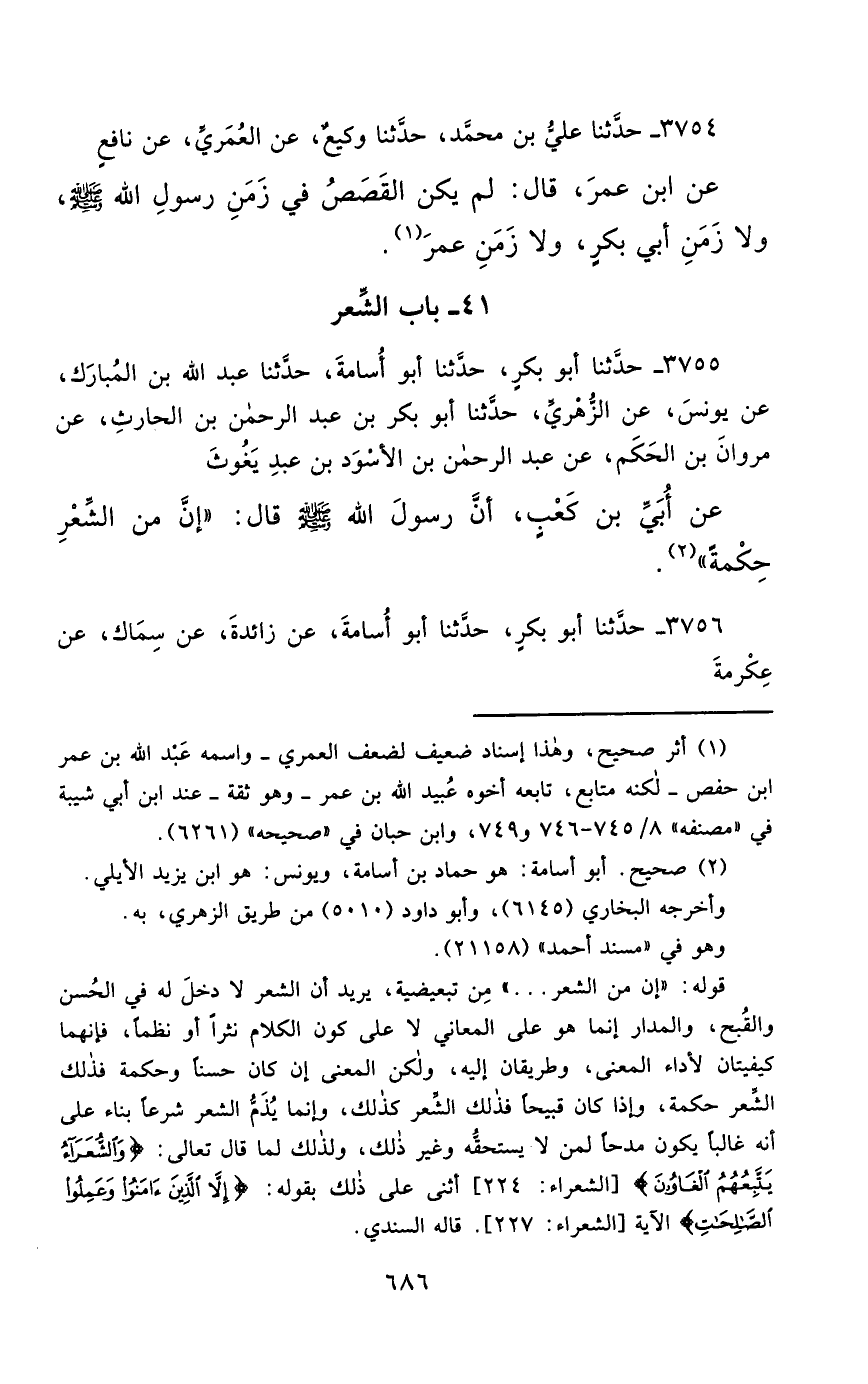 ٣٧٥٤ـ حدَّثنا عليُّ بن محمَّد، حدَّثنا وكيعٌ، عن العُمَريِّ، عن نافعٍ
عن ابن عمرَ، قال: لم يكن القَصَصُ في زَمَنِ رسولِ الله ﷺ،
ولا زَمَنِ أبي بكرٍ، ولا زَمَنِ عمرَ(١).
٤١ـ باب الشِّعر
٣٧٥٥ـ حدَّثنا أبو بكرٍ، حدَّثنا أبو أُسامةَ، حدَّثنا عبد الله بن المُبارَك،
عن يونسَ، عن الزُّهْريِّ، حدَّثنا أبو بكر بن عبد الرحمٰن بن الحارثِ، عن
مروانَ بن الحَكَم، عن عبد الرحمٰن بن الأسْوَد بن عبدِ يَغُوثَ
عن أُبَيِّ بن كَعْبٍ، أنَّ رسولَ الله ﷺ قال: «إنَّ من الشِّعْرِ
حِكْمةً»(٢).
٣٧٥٦ـ حدَّثنا أبو بكرٍ، حدَّثنا أبو أُسامةَ، عن زائدةَ، عن سِمَاك، عن
عِكْرمةَ
(١) أثر صحيح، وهٰذا إسناد ضعيف لضعف العمري ـ واسمه عَبْد الله بن عمر
ابن حفص ـ لٰكنه متابع، تابعه أخوه عُبيد الله بن عمر ـ وهو ثقة ـ عند ابن أبي شيبة
في «مصنفه» ٨/ ٧٤٥-٧٤٦ و٧٤٩، وابن حبان في «صحيحه» (٦٢٦١).
(٢) صحيح. أبو أسامة: هو حماد بن أسامة، ويونس: هو ابن يزيد الأيلي.
وأخرجه البخاري (٦١٤٥)، وأبو داود (٥٠١٠) من طريق الزهري، به.
وهو في «مسند أحمد» (٢١١٥٨).
قوله: «إن من الشعر...» مِن تبعيضية، يريد أن الشعر لا دخلَ له في الحُسن
والقُبح، والمدار إنما هو على المعاني لا على كون الكلام نثراً أو نظماً، فإنهما
كيفيتان لأداء المعنى، وطريقان إليه، ولٰكن المعنى إن كان حسناً وحكمة فذٰلك
الشِّعر حكمة، وإذا كان قبيحاً فذٰلك الشِّعر كذٰلك، وإنما يُذَمُّ الشعر شرعاً بناء على
أنه غالباً يكون مدحاً لمن لا يستحقُّه وغير ذٰلك، ولذٰلك لما قال تعالى: ﴿وَٱلشُّعَرَآءُ
يَتَّبِعُهُمُ ٱلْغَاوُۥنَ﴾ [الشعراء: ٢٢٤] أثنى على ذٰلك بقوله: ﴿إِلَّا ٱلَّذِينَ ءَامَنُوا۟ وَعَمِلُوا۟
ٱلصَّـٰلِحَـٰتِ﴾ الآية [الشعراء: ٢٢٧]. قاله السندي.
٦٨٦